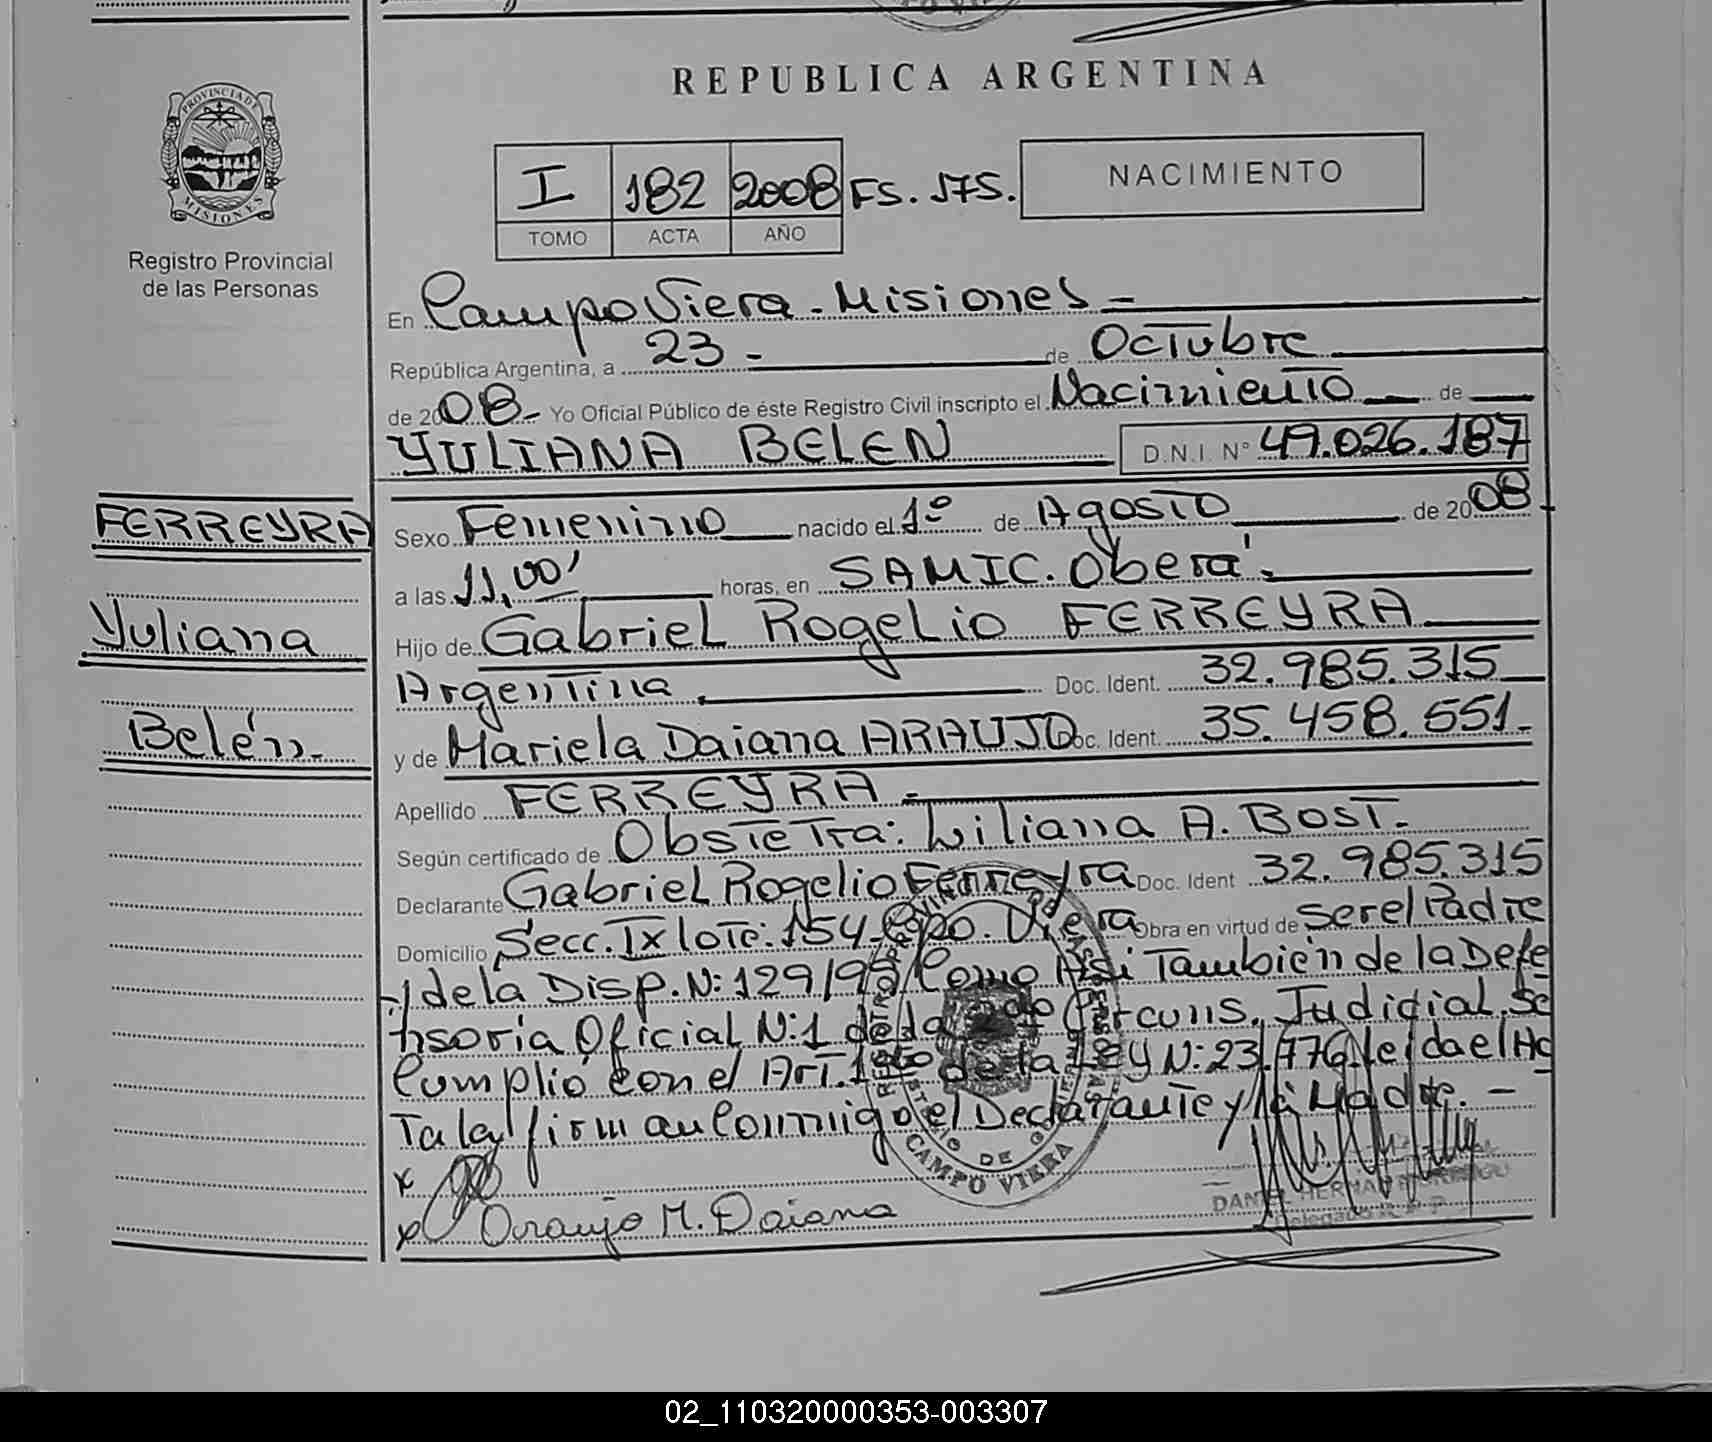 REPUBLICA ARGENTINA
PROVINCIA DE MISIONES
Registro Provincial
de las Personas
I 182 2008 FS. 175.
TOMO ACTA AÑO
NACIMIENTO
En Campo Viera - Misiones -
República Argentina, a 23 - de Octubre
de 2008 - Yo Oficial Público de éste Registro Civil inscripto el Nacimiento de
YULIANA BELEN D.N.I. N° 49.026.187
FERREYRA
Yuliana
Belén.
Sexo Femenino nacido el 1° de Agosto de 2008
a las 11,00' horas, en SAMIC. Oberá.
Hijo de Gabriel Rogelio FERREYRA
Argentina. Doc. Ident. 32.985.315
y de Mariela Daiana ARAUJO Doc. Ident. 35.458.551.-
Apellido FERREYRA -
Según certificado de Obstetra: Liliana A. BOST.-
Declarante Gabriel Rogelio Ferreyra Doc. Ident 32.985.315
Domicilio Secc. IX lote: 154- Cpo. Viera Obra en virtud de ser el Padre
-y de la Disp. N: 129/95 Como Asi También de la Defe
nsoría Oficial N:1 de la 2da Circuns. Judicial. Se
Cumplió con el Art. de la Ley N: 23.776 leida el Ac
Ta la firman Conmigo el Declarante y la Madre. -
x
x Araujo M. Daiana
CAMPO VIERA
02_110320000353-003307